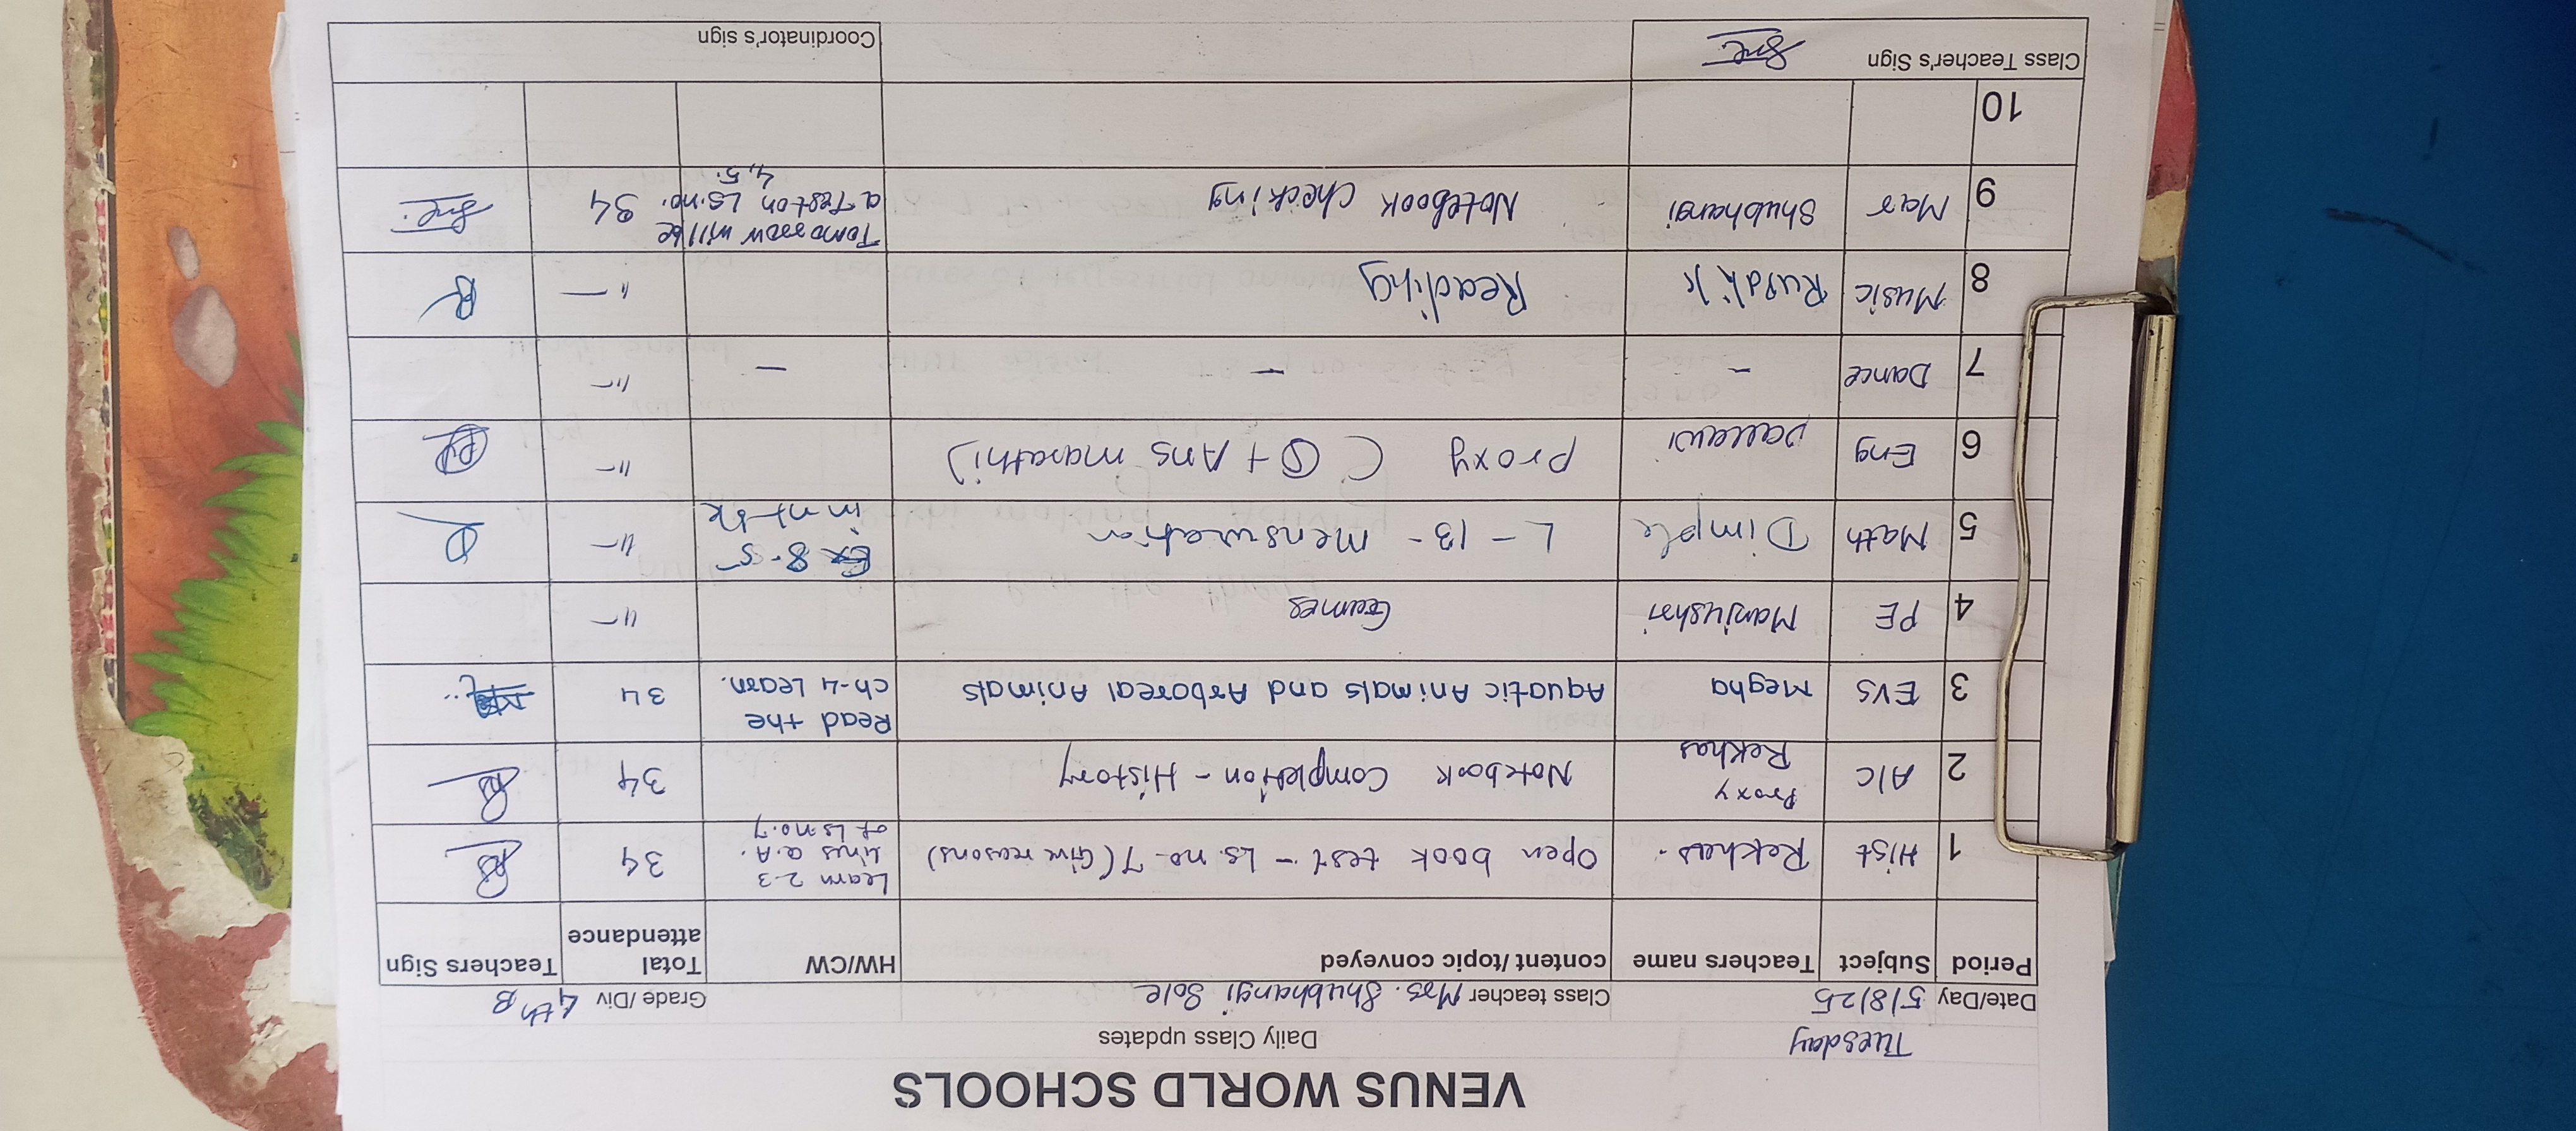 VENUS WORLD SCHOOLS
Daily Class updates
Tuesday
Date/Day 5/8/25 Class teacher Mrs. Shubhangi Sole Grade/Div 4th B
Period Subject Teachers name content/topic conveyed HW/CW Total attendance Teachers Sign
1 Hist Rekha. Open book test - Ls. no - 7 (Give reasons) Learn 2-3 34
Lines Q.A.
of Ls no. 7
2 A/C Proxy Rekha Notebook Completion - History 34
3 EVS Megha Aquatic Animals and Arboreal Animals Read the 34
ch-4 Learn.
4 PE Manjushri Games "
5 Math Dimple L - 13 - mensuration Ex 8.5 "
in nt bk
6 Eng Pallawi Proxy ( Q + Ans marathi) "
7 Dance - - - "
8 Music Rutik Reading "
9 Mar Shubhangi Notebook checking Tomorrow will be 34
a Test on Ls. no.
4, 5.
10
Class Teacher's Sign Coordinator's sign